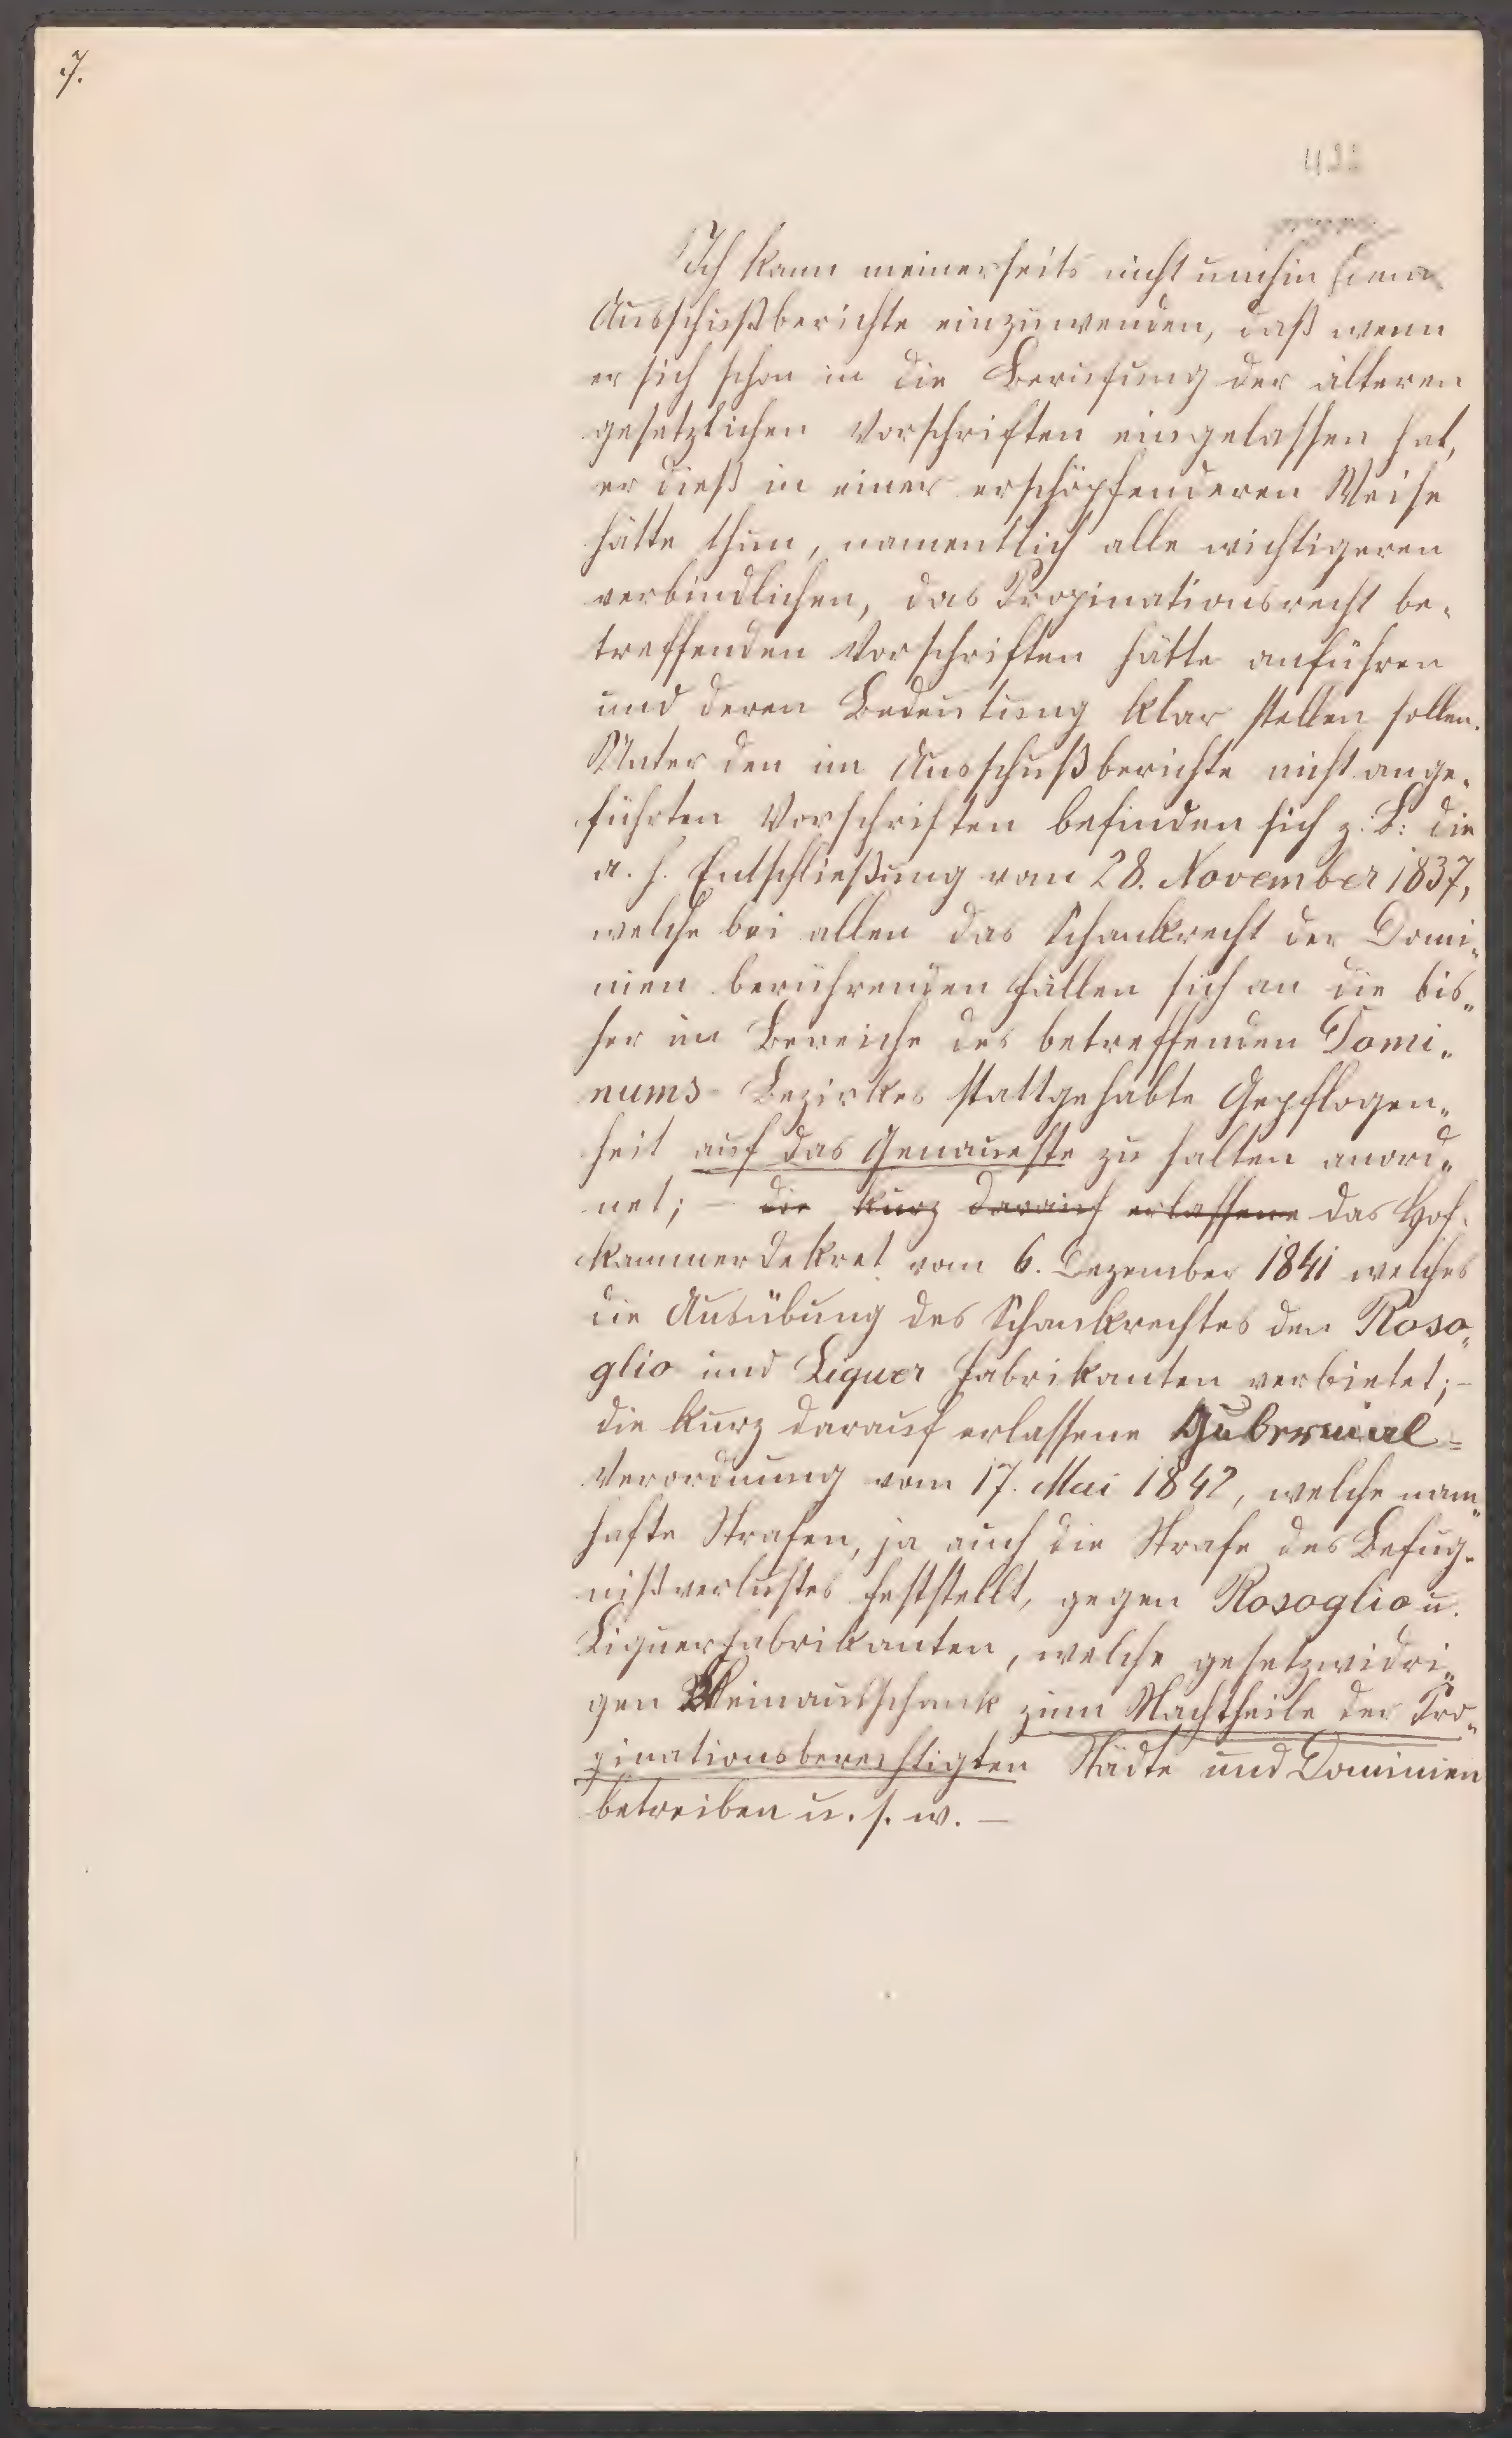 7.
Ich kann meinerseits nicht umhin dem
Ausschußberichte einzuwenden, daß wenn
er sich schon in die Berufung der älteren
gesetzlichen Vorschriften eingelassen hat,
er dieß in einer erschöpfenderen Weise
hätte thun, namentlich alle wichtigeren
verbindlichen, das Propinationsrecht be-
treffenden Vorschriften hätte anführen
und deren Bedeutung klar stellen sollen.
Unter den im Ausschußberichte nicht ange-
führten Vorschriften befinden sich z. B: die
a. h. Entschließung vom 28. November 1837,
welche bei allen das Schankrecht der Domi-
nien berührenden Fällen sich an die bis-
her im Bereiche des betreffenden Domi-
nums-Bezirkes stattgehabte Gepflogen-
heit auf das Genaueste zu halten anord-
net; – die kurz darauf erlassene das Hof-
kammerdekret vom 6. Dezember 1841 welches
die Ausübung des Schankrechtes den Roso-
glio und Liquer Fabrikanten verbietet; –
die kurz darauf erlassene Gubernial-
Verordnung vom 17. Mai 1842, welche nam-
hafte Strafen, ja auch die Strafe des Befug-
nißverlustes feststellt, gegen Rosoglio u.
Liquerfabrikanten, welche gesetzwidri-
gen Kleinausschank zum Nachtheile der Pro-
pinationsberechtigten Städte und Dominien
betreiben u. s. w. –